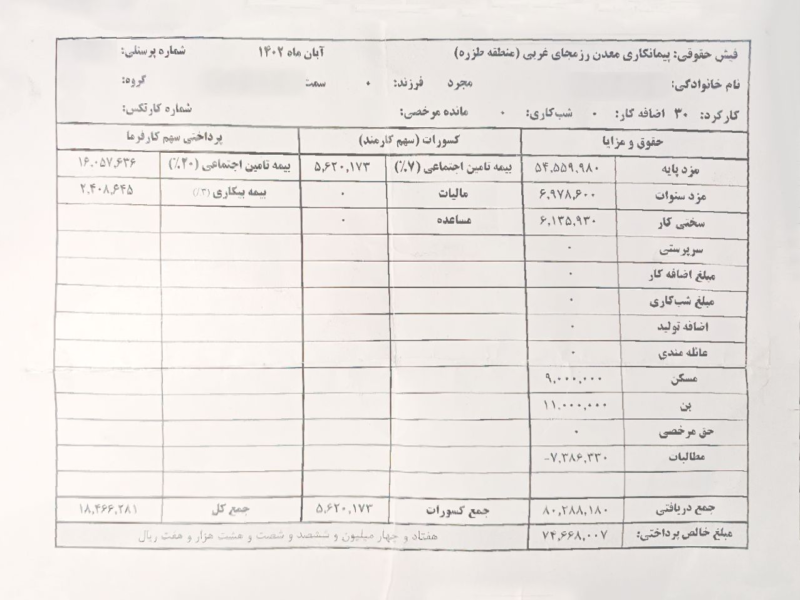 فیش حقوقی: پیمانکاری معدن رزمجای غربی (منطقه طزره) آبان ماه ۱۴۰۲ شماره پرسنلی:
نام خانوادگی: مجرد فرزند: ۰ سمت: گروه:
کارکرد: ۳۰ اضافه کار: ۰ شب‌کاری: ۰ مانده مرخصی: شماره کارتکس:
حقوق و مزایا کسورات (سهم کارمند) پرداختی سهم کارفرما
مزد پایه ۵۴,۵۵۹,۹۸۰ بیمه تامین اجتماعی (۷٪) ۵,۶۲۰,۱۷۳ بیمه تامین اجتماعی (۲۰٪) ۱۶,۰۵۷,۶۳۶
مزد سنوات ۶,۹۷۸,۶۰۰ مالیات ۰ بیمه بیکاری (۳٪) ۲,۴۰۸,۶۴۵
سختی کار ۶,۱۳۵,۹۳۰ مساعده ۰
سرپرستی ۰
مبلغ اضافه کار ۰
مبلغ شب‌کاری ۰
اضافه تولید ۰
عائله مندی ۰
مسکن ۹,۰۰۰,۰۰۰
بن ۱۱,۰۰۰,۰۰۰
حق مرخصی ۰
مطالبات ۷,۳۸۶,۳۳۰-
جمع دریافتی ۸۰,۲۸۸,۱۸۰ جمع کسورات ۵,۶۲۰,۱۷۳ جمع کل ۱۸,۴۶۶,۲۸۱
مبلغ خالص پرداختی: ۷۴,۶۶۸,۰۰۷ هفتاد و چهار میلیون و ششصد و شصت و هشت هزار و هفت ریال